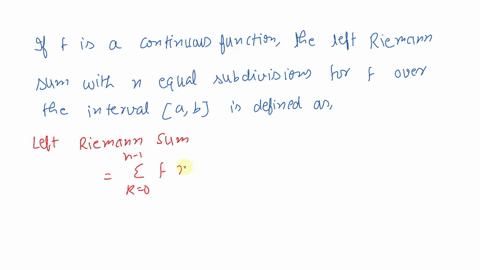 If f is a continuous function, the left Riemann
sum with n equal subdivisions for f over
the interval [a,b] is defined as,
Left Riemann Sum
n-1
= Σ f
K=0